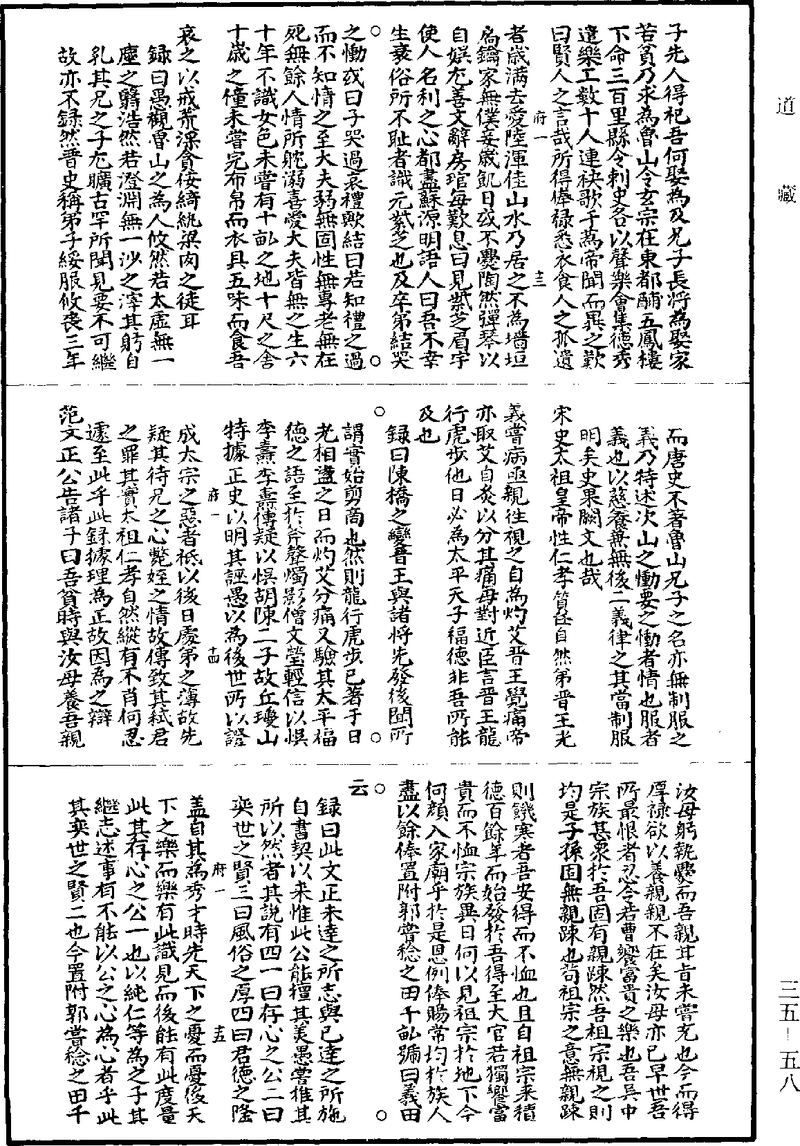 道藏
子先人得祀吾何娶為及兄子長將為娶家
苦貧乃求為魯山令玄宗在東都酺五鳳樓
下命三百里縣令刺史各以聲樂會集德秀
遣樂工數十人連袂歌于蔿帝聞而異之歎
曰賢人之言哉所得俸祿悉衣食人之孤遺
府一
十三
者歲滿去愛陸渾佳山水乃居之不為墻垣
扃鑰家無僕妾歲飢日或不爨陶然彈琴以
自娛尤善文辭房琯每歎息曰見紫芝眉宇
使人名利之心都盡蘇源明語人曰吾不幸
生衰俗所不耻者識元紫芝也及卒弟結哭
之慟或曰子哭過哀禮歟結曰若知禮之過
而不知情之至大夫弱無固性無專老無在
死無餘人情所躭溺喜愛大夫皆無之生六
十年不識女色未嘗有十畝之地十尺之舍
十歲之僮未嘗完布帛而衣具五味而食吾
哀之以戒荒淫貪佞綺紈粱肉之徒耳
錄曰愚觀魯山之為人攸然若太虛無一
塵之翳浩然若澄淵無一沙之滓其躬自
乳其兄之子尤曠古罕所聞見要不可繼
故亦不錄然晉史稱弟子綏服攸喪三年
而唐史不著魯山兄子之名亦無制服之
義乃特述次山之慟要之慟者情也服者
義也以慈養無無後二義律之其當制服
明矣史果闕文也哉
宋史太祖皇帝性仁孝質任自然弟晉王光
義嘗病亟親往視之自為灼艾晉王覺痛帝
亦取艾自炙以分其痛每對近臣言晉王龍
行虎步他日必為太平天子福德非吾所能
及也
錄曰陳橋之變晉王與諸將先發後聞所
謂實始剪商也然則龍行虎步已著于日
老相盪之日而灼艾分痛又驗其太平福
德之語至於斧聲燭影僧文瑩輕信以悞
李燾李燾傳疑以悞胡陳二子故丘瓊山
特據正史以明其誣愚以為後世所以證
府一
十四
成太宗之惡者祇以後日處弟之薄故先
疑其待兄之心斃姪之情故傳致其弒君
之罪其實太祖仁孝自然縱有不肖何忍
遽至此乎此錄據理為正故因為之辯
范文正公告諸子曰吾貧時與汝母養吾親
汝母躬執爨而吾親甘旨未嘗充也今而得
厚祿欲以養親親不在矣汝母亦已早世吾
所最恨者忍令若曹饗富貴之樂也吾吳中
宗族甚衆於吾固有親踈然吾祖宗視之則
均是子孫固無親踈也茍祖宗之意無親踈
則饑寒者吾安得而不恤也且自祖宗來積
德百餘年而始發於吾得至大官若獨饗富
貴而不恤宗族異日何以見祖宗於地下今
何顔入家廟乎於是恩例俸賜常均於族人
盡以餘俸置附郭嘗稔之田千畝號曰義田
云
錄曰此文正未達之所志與已達之所施
自書契以來惟此公能擅其美愚嘗推其
所以然者其說有四一曰存心之公二曰
奕世之賢三曰風俗之厚四曰君德之隆
府一
十五
盖自其為秀才時先天下之憂而憂後天
下之樂而樂有此識見而後能有此度量
此其存心之公一也以純仁等為之子其
繼志述事有不能以公之心為心者乎此
其奕世之賢二也今置附郭嘗稔之田千
三五－五八